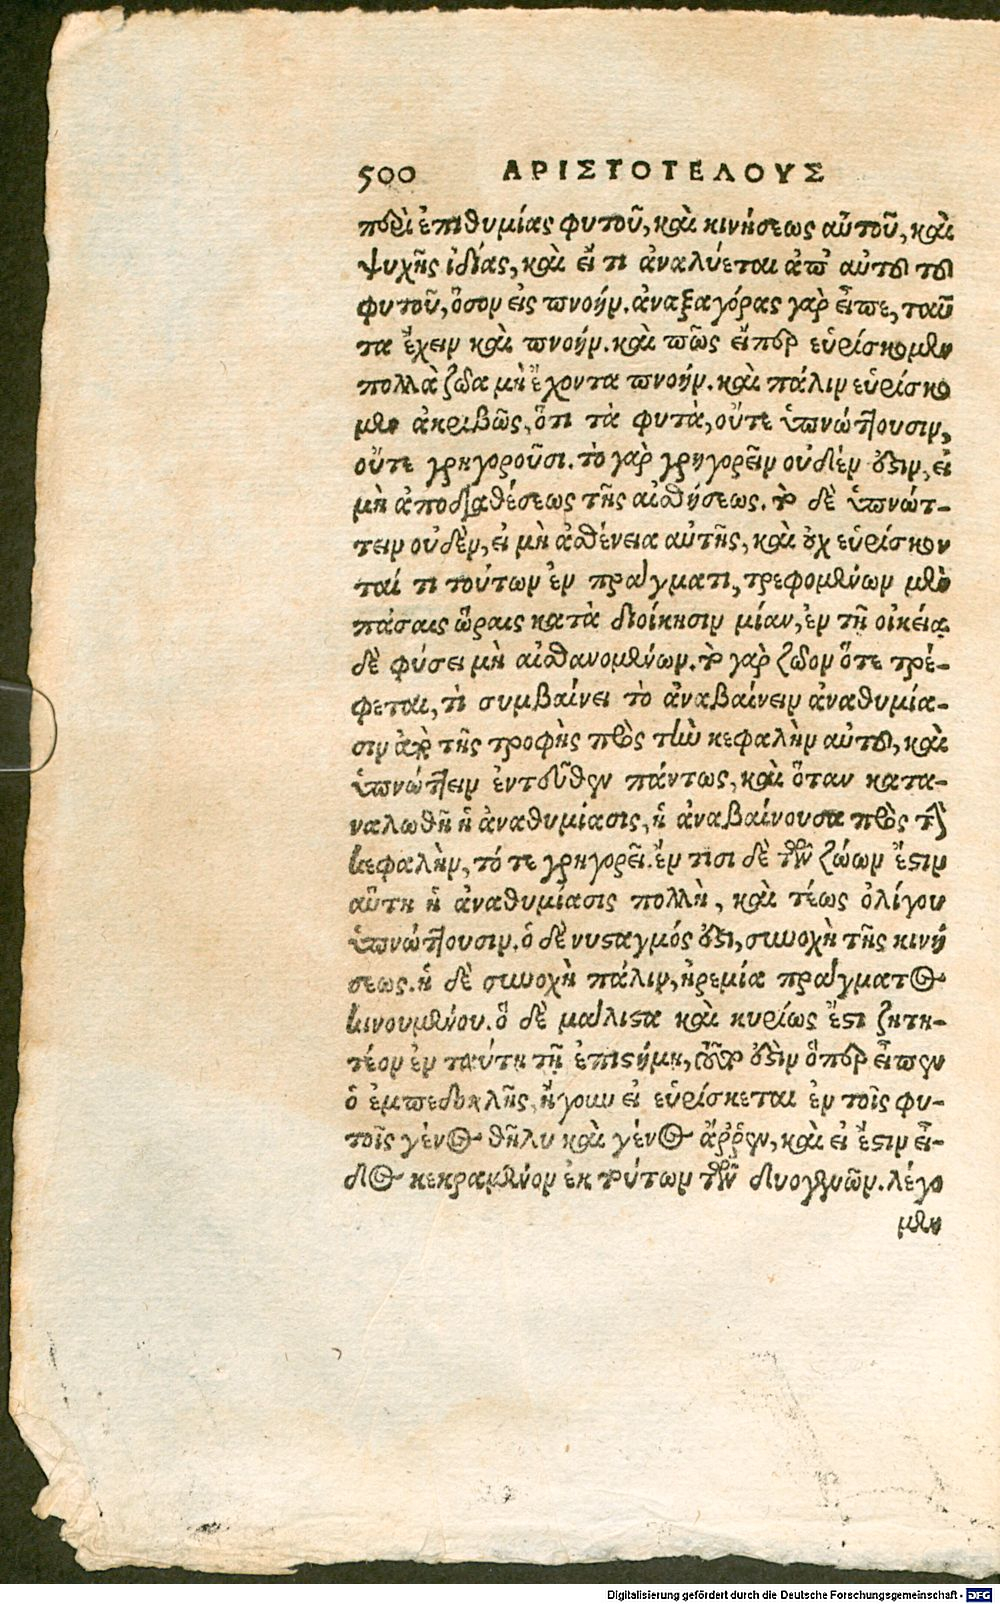 500 ΑΡΙΣΤΟΤΕΛΟΥΣ
περὶ ἐπιθυμίας φυτοῦ, καὶ κινήσεως αὐτοῦ, καὶ
ψυχῆς ἰδίας, καὶ εἴ τι ἀναλύεται ἀπ' αὐτοῦ τοῦ
φυτοῦ, ὅσον εἰς πνοήν. ἀναξαγόρας γὰρ εἶπε, ταῦ
τα ἔχειν καὶ πνοήν. καὶ πῶς εἴπερ εὑρίσκομεν
πολλὰ ζῶα μὴ ἔχοντα πνοήν. καὶ πάλιν εὑρίσκο
μεν ἀκριβῶς, ὅτι τὰ φυτὰ, οὔτε ὑπνώττουσιν,
οὔτε γρηγοροῦσι. τὸ γὰρ γρηγορεῖν οὐδέν ἐστιν, εἰ
μὴ ἀποδιαθέσεως τῆς αἰσθήσεως. τὸ δὲ ὑπνώτ-
τειν οὐδὲν, εἰ μὴ ἀσθένεια αὐτῆς, καὶ οὐχ εὑρίσκον
ταί τι τούτων ἐν πράγματι, τρεφομένων μὲν
πάσαις ὥραις κατὰ διοίκησιν μίαν, ἐν τῇ οἰκεία
δὲ φύσει μὴ αἰσθανομένων. τὸ γὰρ ζῶον ὅτε τρέ-
φεται, τὶ συμβαίνει τὸ ἀναβαίνειν ἀναθυμία-
σιν ἀπὸ τῆς τροφῆς πρὸς τὴν κεφαλὴν αὐτοῦ, καὶ
ὑπνώττειν ἐντεῦθεν πάντως, καὶ ὅταν κατα-
ναλωθῇ ἡ ἀναθυμίασις, ἡ ἀναβαίνουσα πρὸς τὴν
κεφαλὴν, τό τε γρηγορεῖ. ἐν τισι δὲ τῶν ζώων ἔστιν
αὕτη ἡ ἀναθυμίασις πολλὴ, καὶ τέως ὀλίγου
ὑπνώττουσιν. ὁ δὲ νυσταγμός ἐστι, συνοχὴ τῆς κινή
σεως. ἡ δὲ συνοχὴ πάλιν, ἠρεμία πράγματος
κινουμένου. ὃ δὲ μάλιστα καὶ κυρίως ἔστι ζητη-
τέον ἐν ταύτη τῇ ἐπιστήμη, τοῦτό ἐστὶν ὅπερ εἶπεν
ὁ ἐμπεδοκλῆς, ἤγουν εἰ εὑρίσκεται ἐν τοῖς φυ-
τοῖς γένος θῆλυ καὶ γένος ἄῤῥεν, καὶ εἰ ἔστιν εἶ-
δος κεκραμένον ἐκ τούτων τῶν δυογενῶν. λέγο
μεν
Digitalisierung gefördert durch die Deutsche Forschungsgemeinschaft - DFG